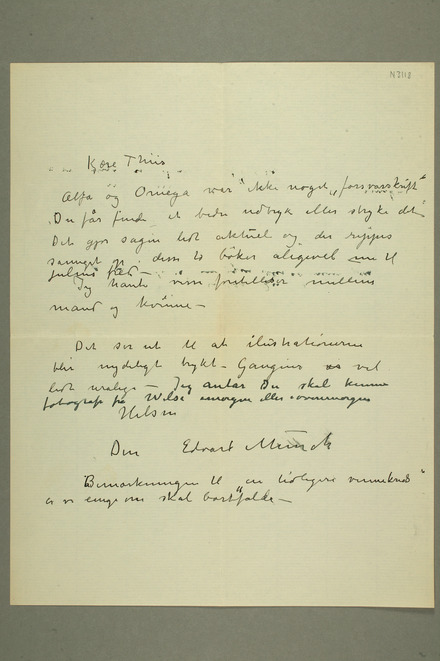 N 2118
Kære Thiis
Alfa og Omega var ikke noget „forsvarsskrift"
Du får finde et bedre udtryk eller stryke det
Det gjør sagen lidt aktuel og der rippes
op i disse to bøker aligevel
Jeg mente visse mellem
mand og kvinne –
Det ser ut til at ilustrationerne
blir nydeligt trykt – Gaugins er vel
lidt uralige – Jeg antar Du skal kunne
fotografi fra Wilse imorgen eller overimorgen
Hilsen
Din Edvard Munch
Bemærkningen til „en tidligere
er vi enige om skal bortfalde –